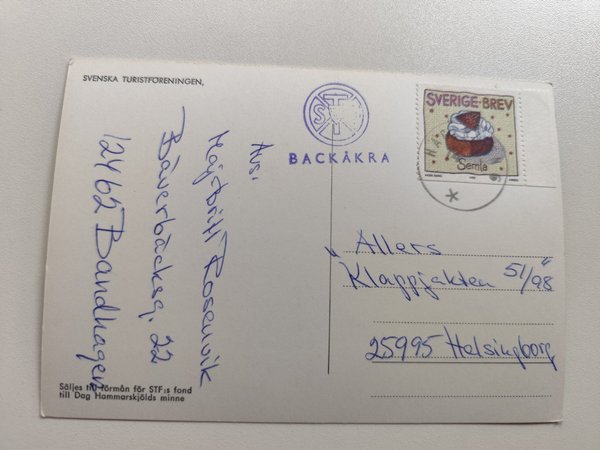 SVENSKA TURISTFÖRENINGEN,
STF
BACKÅKRA
SVERIGE BREV
Semla
Avs.
Majbritt Rosenvik
Bäverbäcksg. 22
12462 Bandhagen
Allers
"Klappjakten 51/98"
25995 Helsingborg
Säljes till förmån för STF:s fond
till Dag Hammarskjölds minne